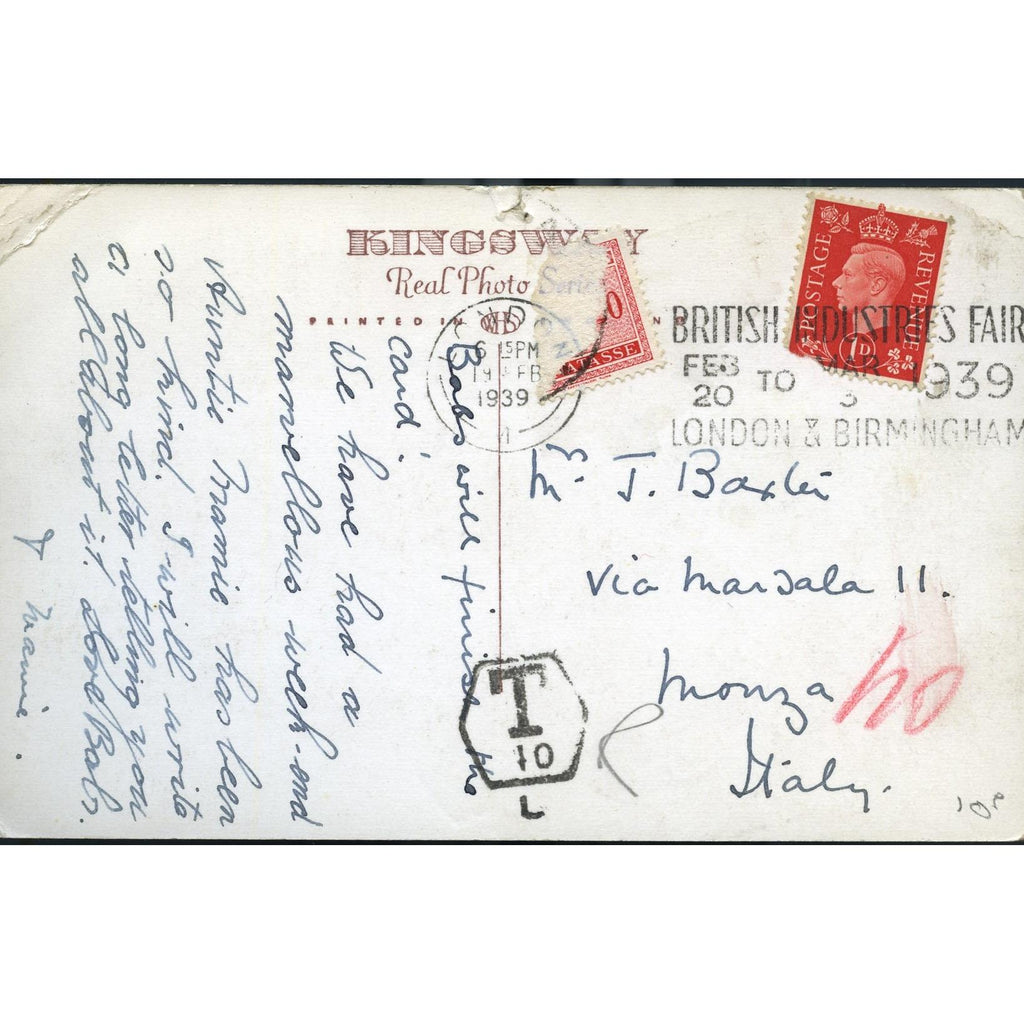 KINGSWAY
Real Photo Series
PRINTED IN
BRITISH INDUSTRIES FAIR
FEB MAR 1939
20 TO 3
LONDON & BIRMINGHAM
6 15PM
19 FEB
1939
POSTAGE
REVENUE
1D
TASSE
Mrs J. Baxter
via Marsala 11.
Monza
Italy.
40
T
10
L
Babs will finish the
card.
We have had a
marvellous week-end
Auntie Mamie has been
so kind. I will write
a long letter telling you
all about it, love Babs.
& Mamie.